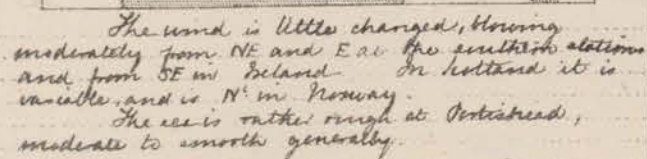 The wind is little changed, blowing
moderately from NE and E at the southern stations
and from SE in Ireland. In Scotland it is
variable, and is N'. in Norway.
The sea is rather rough at Portishead,
moderate to smooth generally.